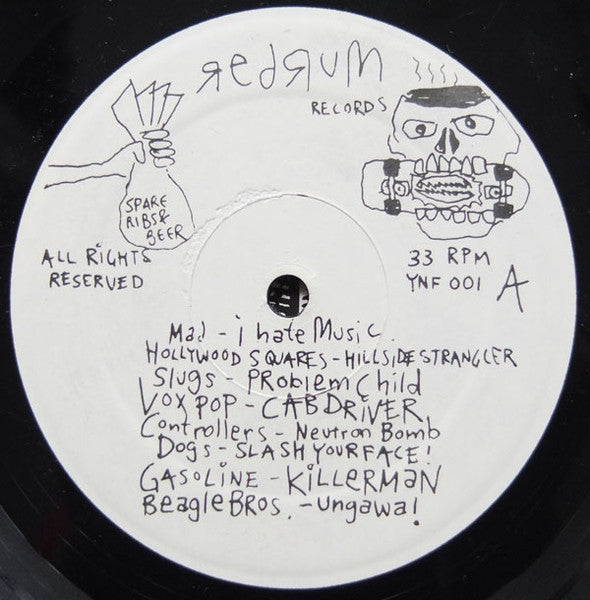 ЯedЯuM
RECORDS
SPARE
RIBS &
BEER
ALL RiGHTS
RESERVED
33 RPM
YNF 001 A
Mad - i hate Music.
HOLLYWOOD SQUARES - HILLSIDE STRANGLER
Slugs - PRoblem Child
VOX POP - CAB DRiVER
Controllers - Neutron Bomb
Dogs - SLASH YOUR FACE!
GASOLiNE - KiLLERMaN
BeagleBROS. - ungawa!